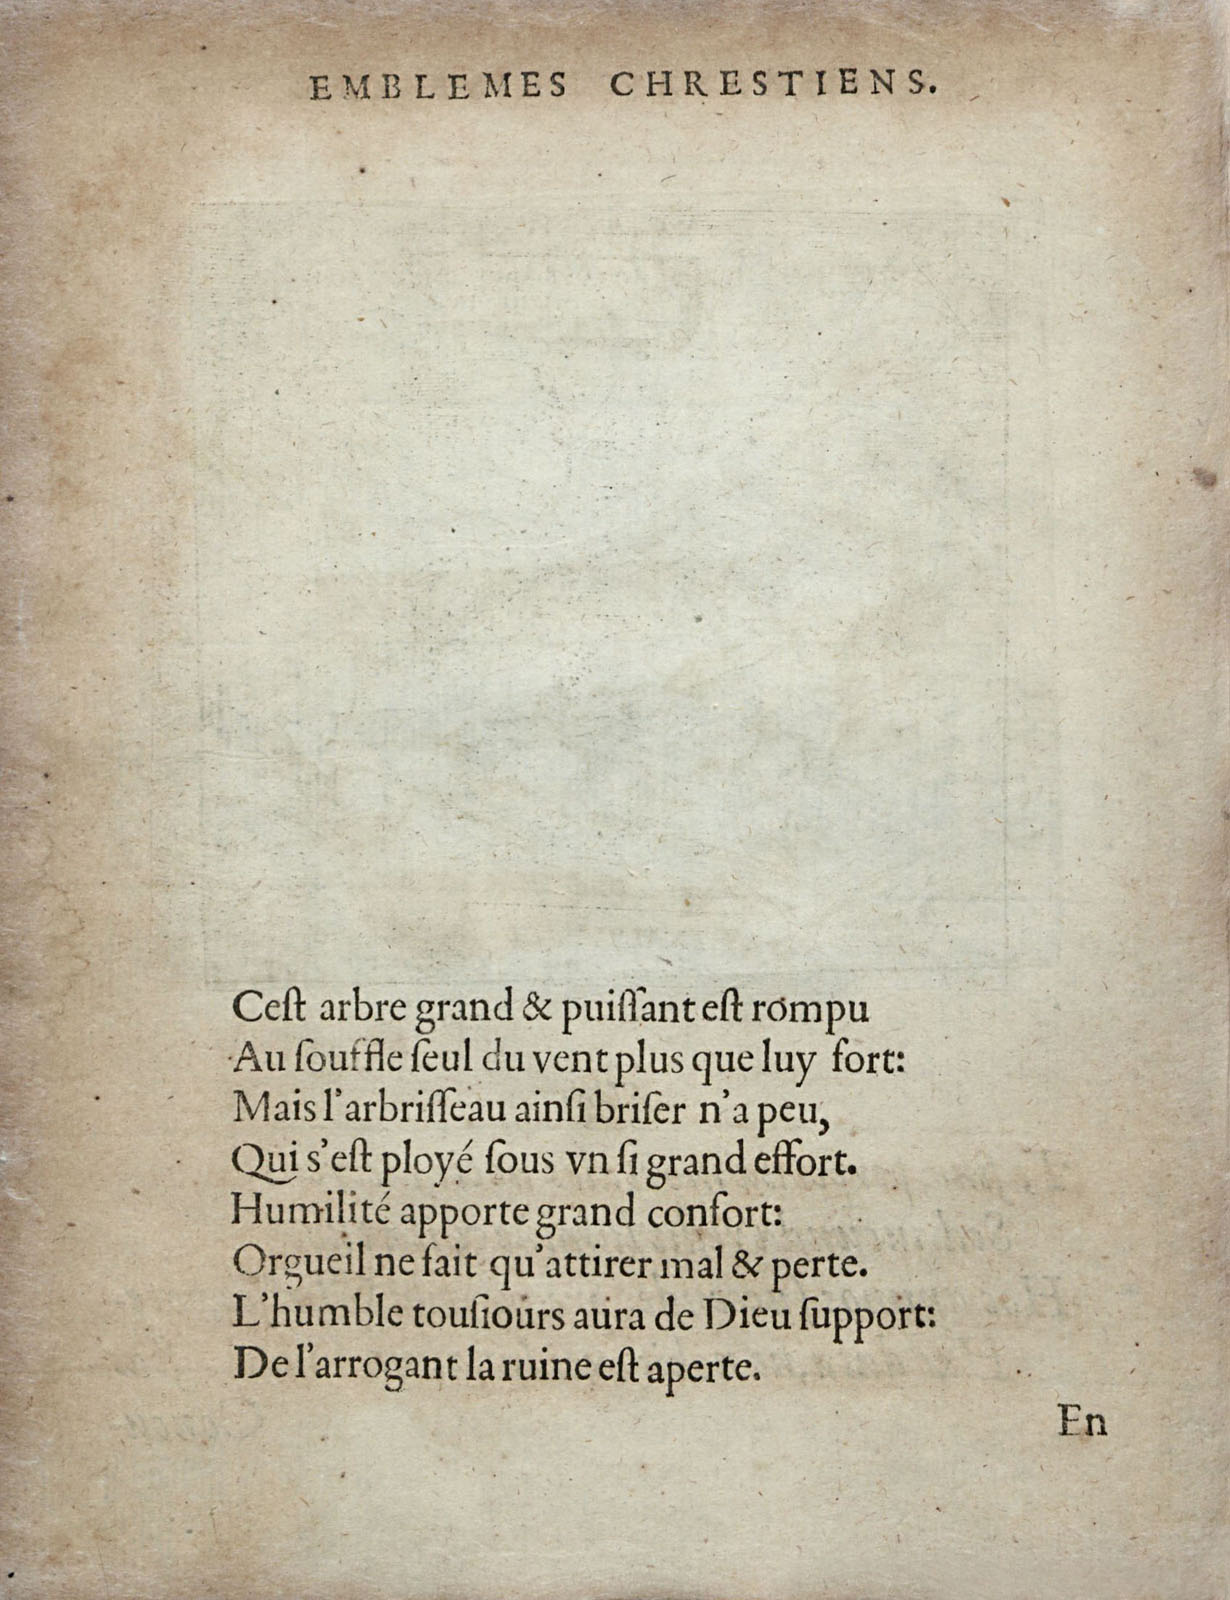 EMBLEMES CHRESTIENS.
Ceſt arbre grand & puiſſant eſt rompu
Au ſouffle ſeul du vent plus que luy fort:
Mais l'arbriſſeau ainſi briſer n'a peu,
Qui s'eſt ployé ſous vn ſi grand effort.
Humilité apporte grand confort:
Orgueil ne fait qu'attirer mal & perte.
L'humble touſiours aura de Dieu ſupport:
De l'arrogant la ruine eſt aperte.
En